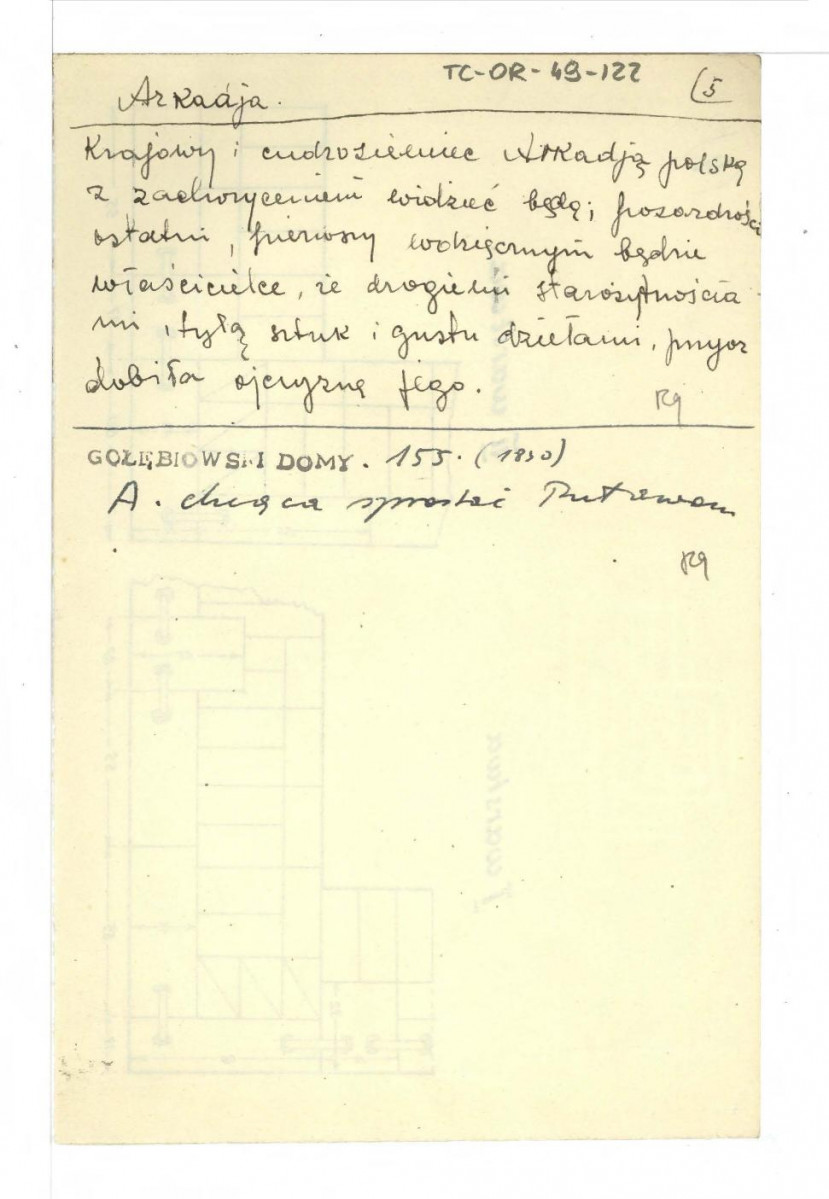 TC-OR-49-122
(5
Arkadja.
Krajowy i cudzoziemiec Arkadją polską
z zachwyceniem widzieć będą; pozazdrości
ostatni, pierwszy wdzięcznym będzie
właścicielce, że drogiemi starożytnościa
mi, tylą sztuk i gustu dziełami, przyoz
dobiła ojczyznę jego.
Rg
GOŁĘBIOWSKI DOMY. 155. (1830)
A. chcąca sprostać Puławom
Rg
I warstwa